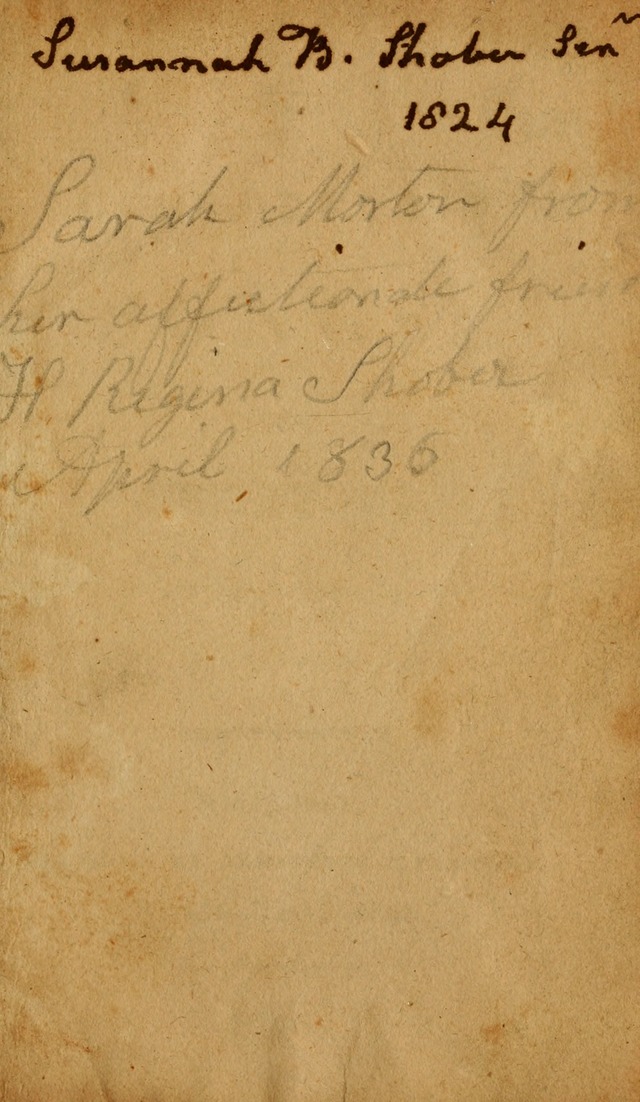 Susannah B. Shober Senr
1824
Sarah Morton from
her affectionate friend
H Regina Shober
April 1836